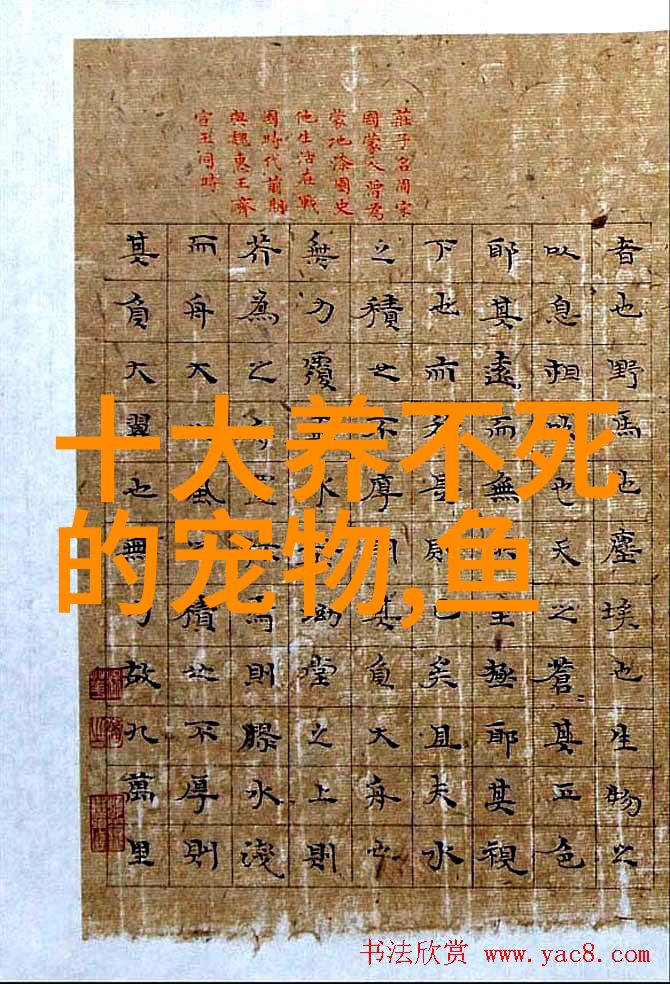 莊子名周宋
國蒙人曾為
蒙地漆園史
他生活在戰
國時代前期
與魏惠王齊
宣王同時
者也野馬也塵埃也生物之
以息相吹也天之蒼其正色
耶其遠而無所至極耶其視
下也而若是則已矣且夫水
之積也不厚則其負大舟也
無力覆杯水於坳堂之上則
芥為之舟置杯焉則膠水淺
而舟大也風之積也不厚則
其負大翼也無力故九萬里
十大养不死
的宠物,鱼
书法欣赏 www.yac8.com